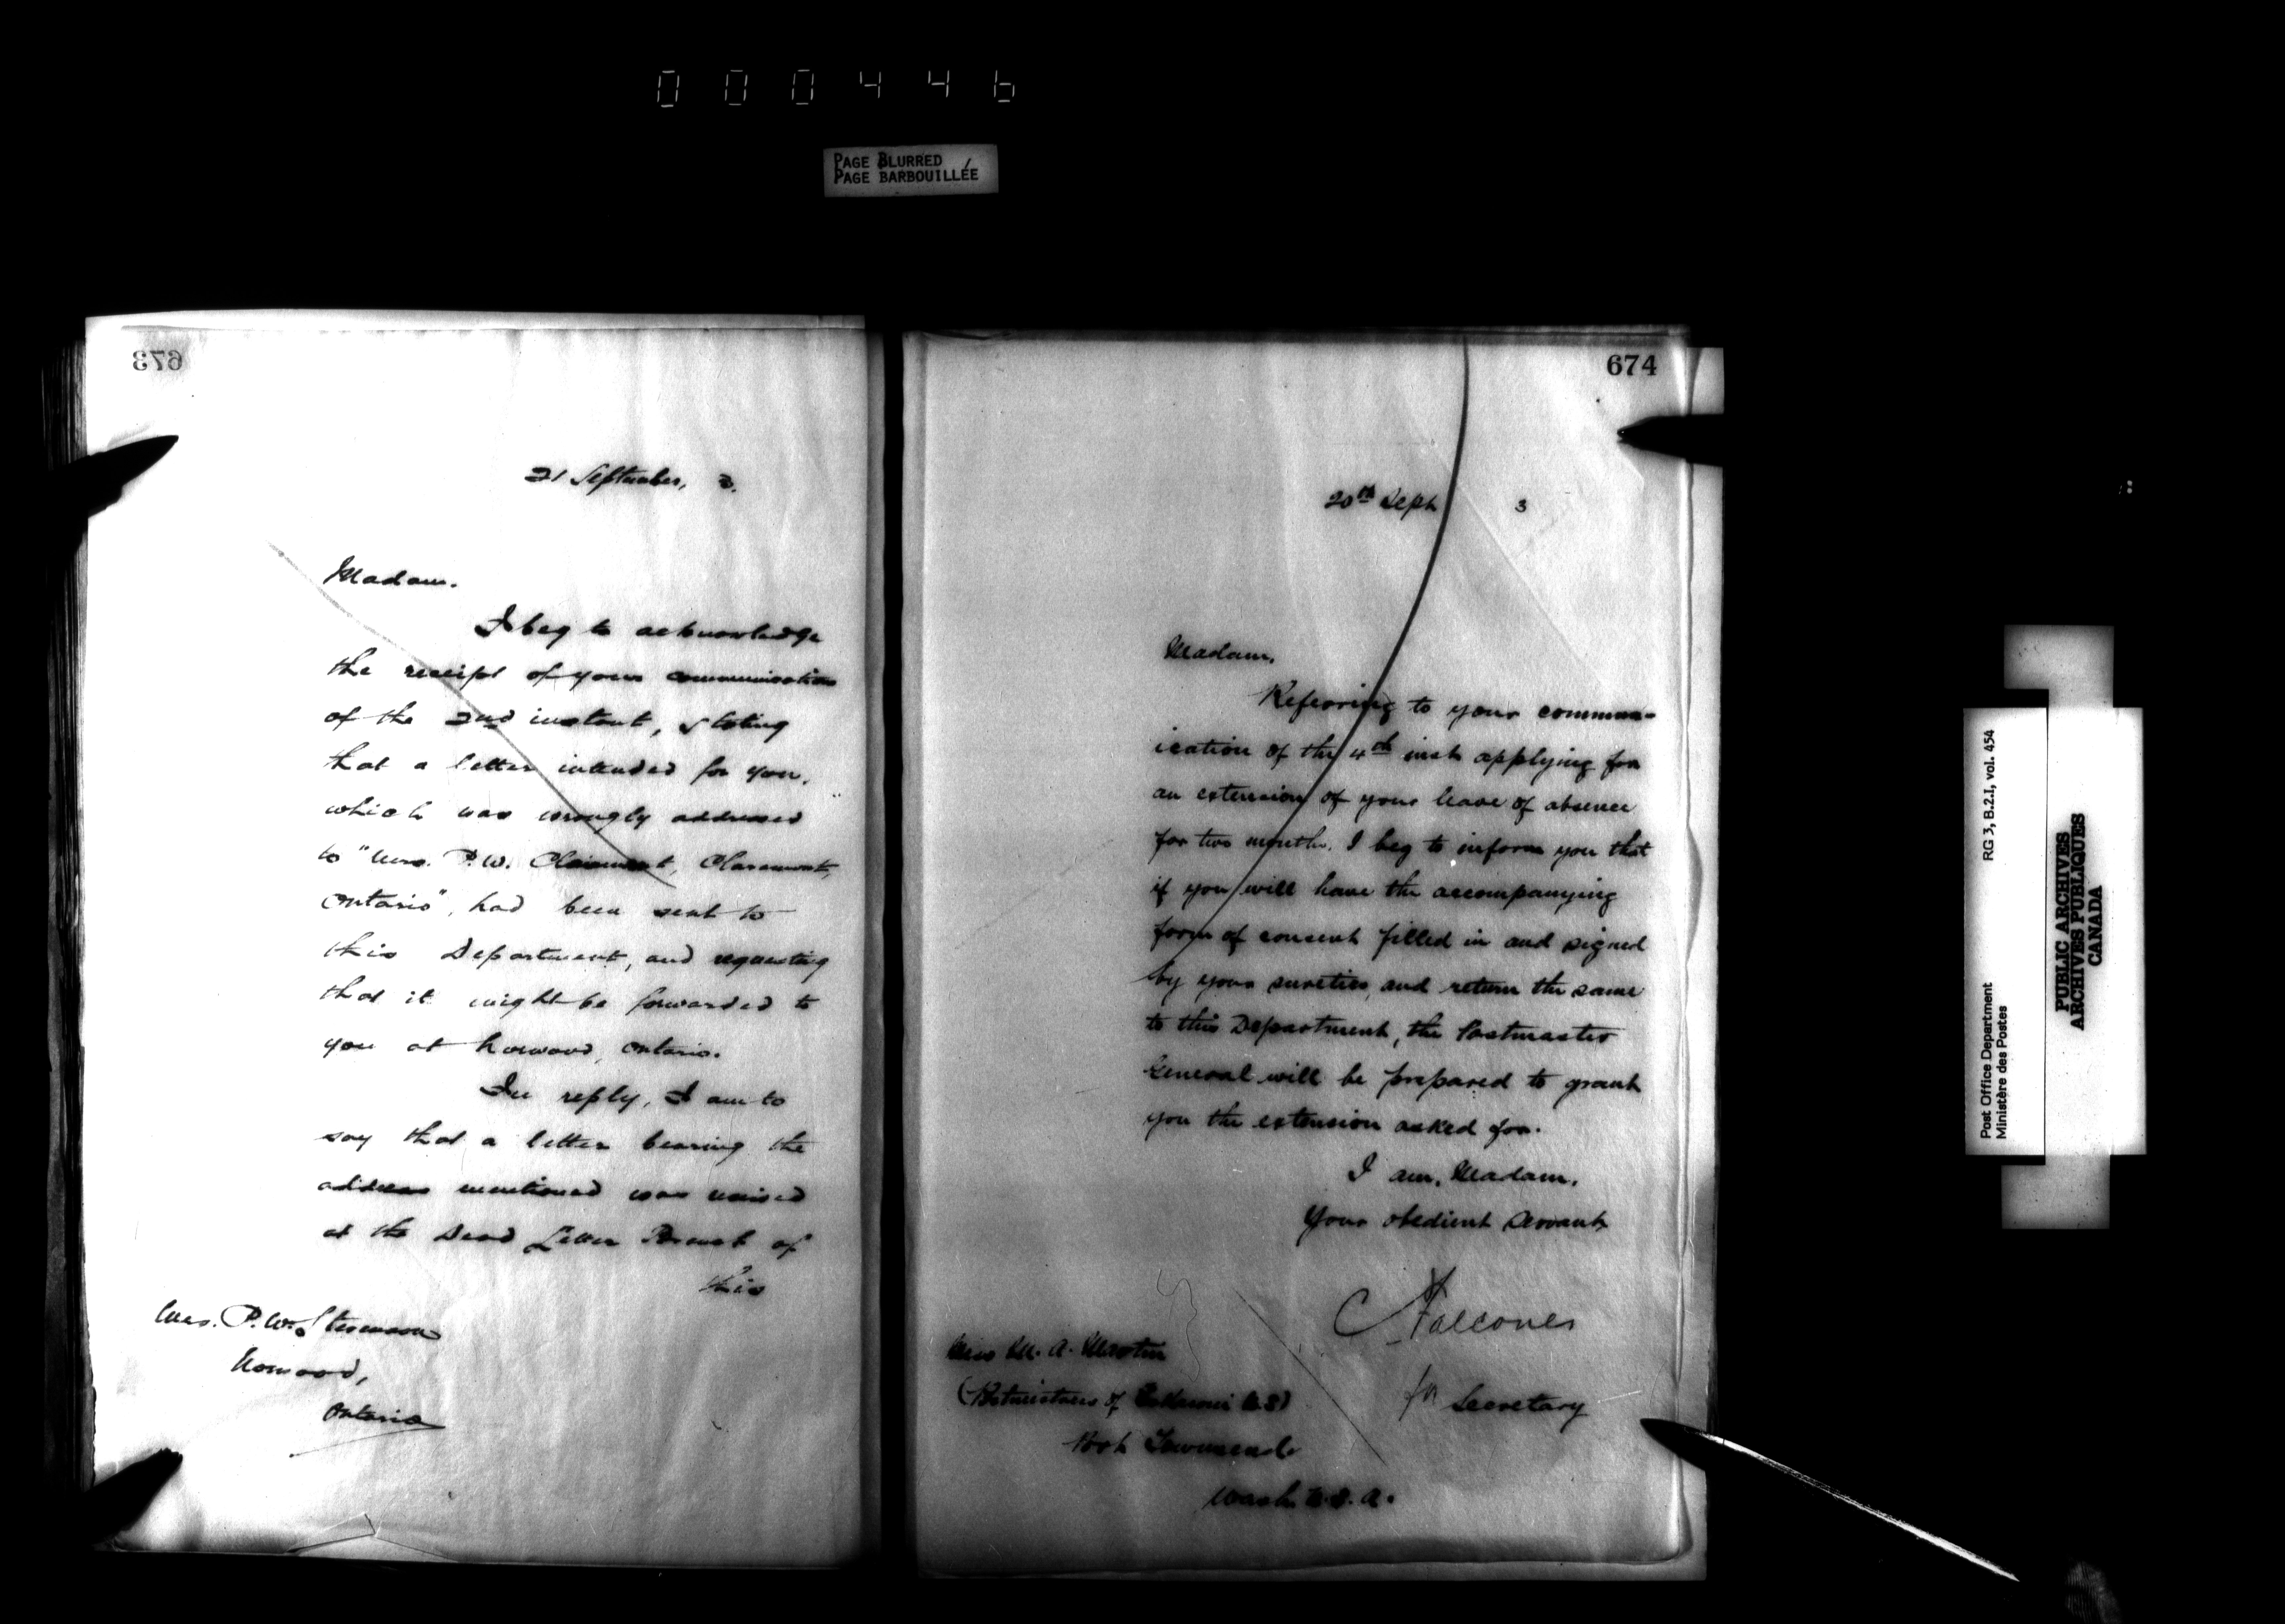 000446
PAGE BLURRED
PAGE BARBOUILLÉE
673
21 September, 3.
Madam.
I beg to acknowledge
the receipt of your communication
of the 2nd instant, stating
that a letter intended for you,
which was wrongly addressed
to "Mrs. P. W. Claremont,
Ontario", had been sent to
this Department, and requesting
that it might be forwarded to
you at Norwood, Ontario.
In reply, I am to
say that a letter bearing the
address mentioned was received
at the Dead Letter Branch of
this
Mrs. P. W. Stevenson
Norwood,
Ontario
674
20th Sept 3
Madam,
Referring to your commun-
ication of the 4th inst applying for
an extension of your leave of absence
for two months. I beg to inform you that
if you will have the accompanying
form of consent filled in and signed
by your sureties, and return the same
to this Department, the Postmaster
General will be prepared to grant
you the extension asked for.
I am, Madam,
Your obedient Servant,
Falconer
for Secretary
Miss M. A. Martin
(Postmistress of
Port Townsend
Wash. U.S.A.
Post Office Department
Ministère des Postes
RG 3, B.2.I, vol. 454
PUBLIC ARCHIVES
ARCHIVES PUBLIQUES
CANADA